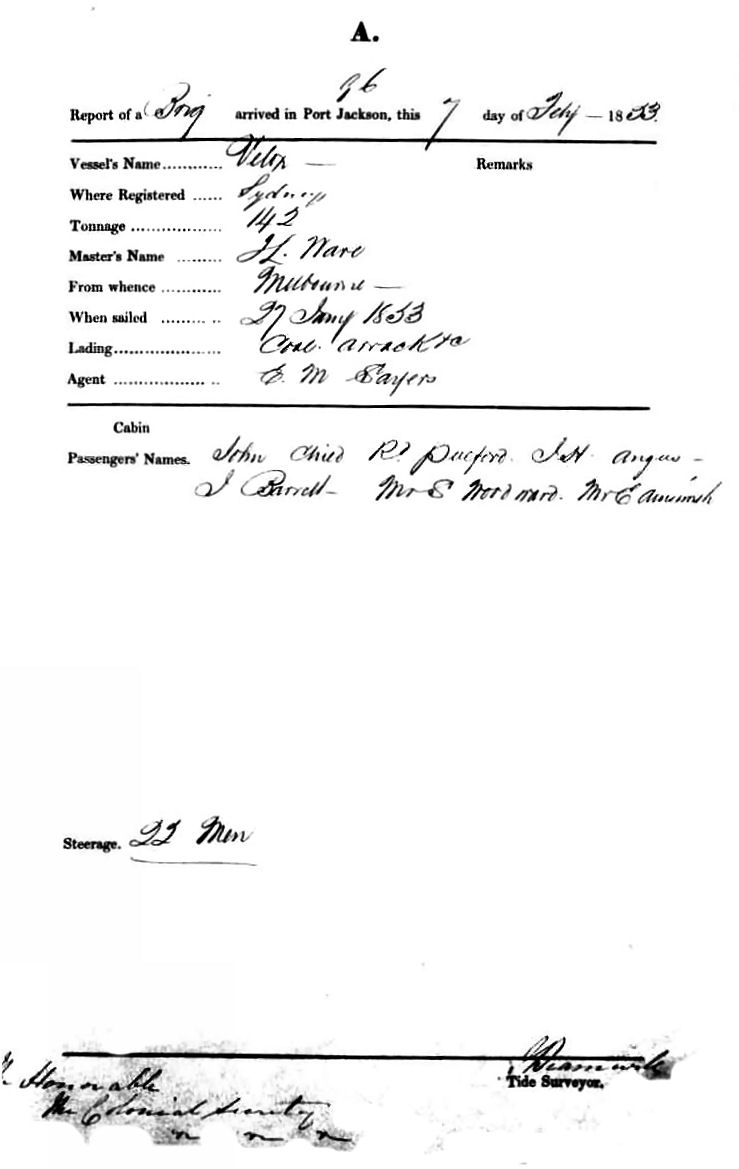 A.
96
Report of a Brig arrived in Port Jackson, this 7 day of Feby — 1853.
Vessel's Name............ Velox — Remarks
Where Registered ...... Sydney
Tonnage .................. 142
Master's Name ......... J L. Ware
From whence ............ Melbourne —
When sailed ......... .. 27 Jany 1853
Lading..................... Coal. Arrack &c
Agent .................. .. E. M Sayers
Cabin
Passengers' Names. John Child Rd J H. Angus —
J Barrett — Mr S Woodward. Mr E
Steerage. 22 Men
Tide Surveyor.
Honorable
The Colonial Secretary